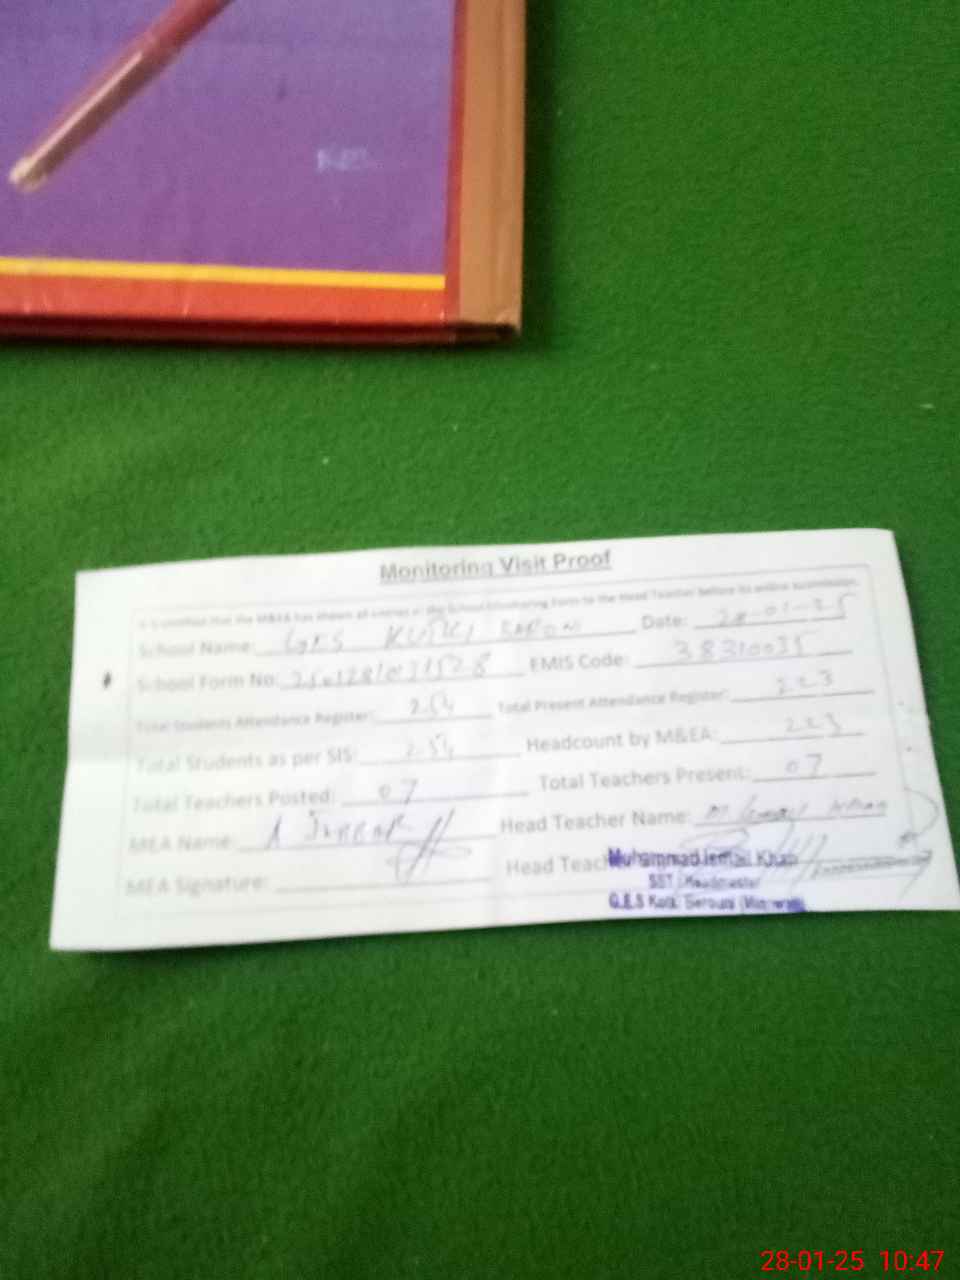 Monitoring Visit Proof
It is certified that the M&EA has shown all entries of the School Monitoring Form to the Head Teacher before its online submission.
School Name: Date: 28-01-25
School Form No: EMIS Code: 38310035
Total Students Attendance Register: 254 Total Present Attendance Register: 223
Total Students as per SIS: 254 Headcount by M&EA: 223
Total Teachers Posted: 07 Total Teachers Present: 07
MEA Name: A JABBAR Head Teacher Name:
MEA Signature: Head Teac
Muhammad Ismail Khan
SST Headmaster
G.E.S
28-01-25 10:47